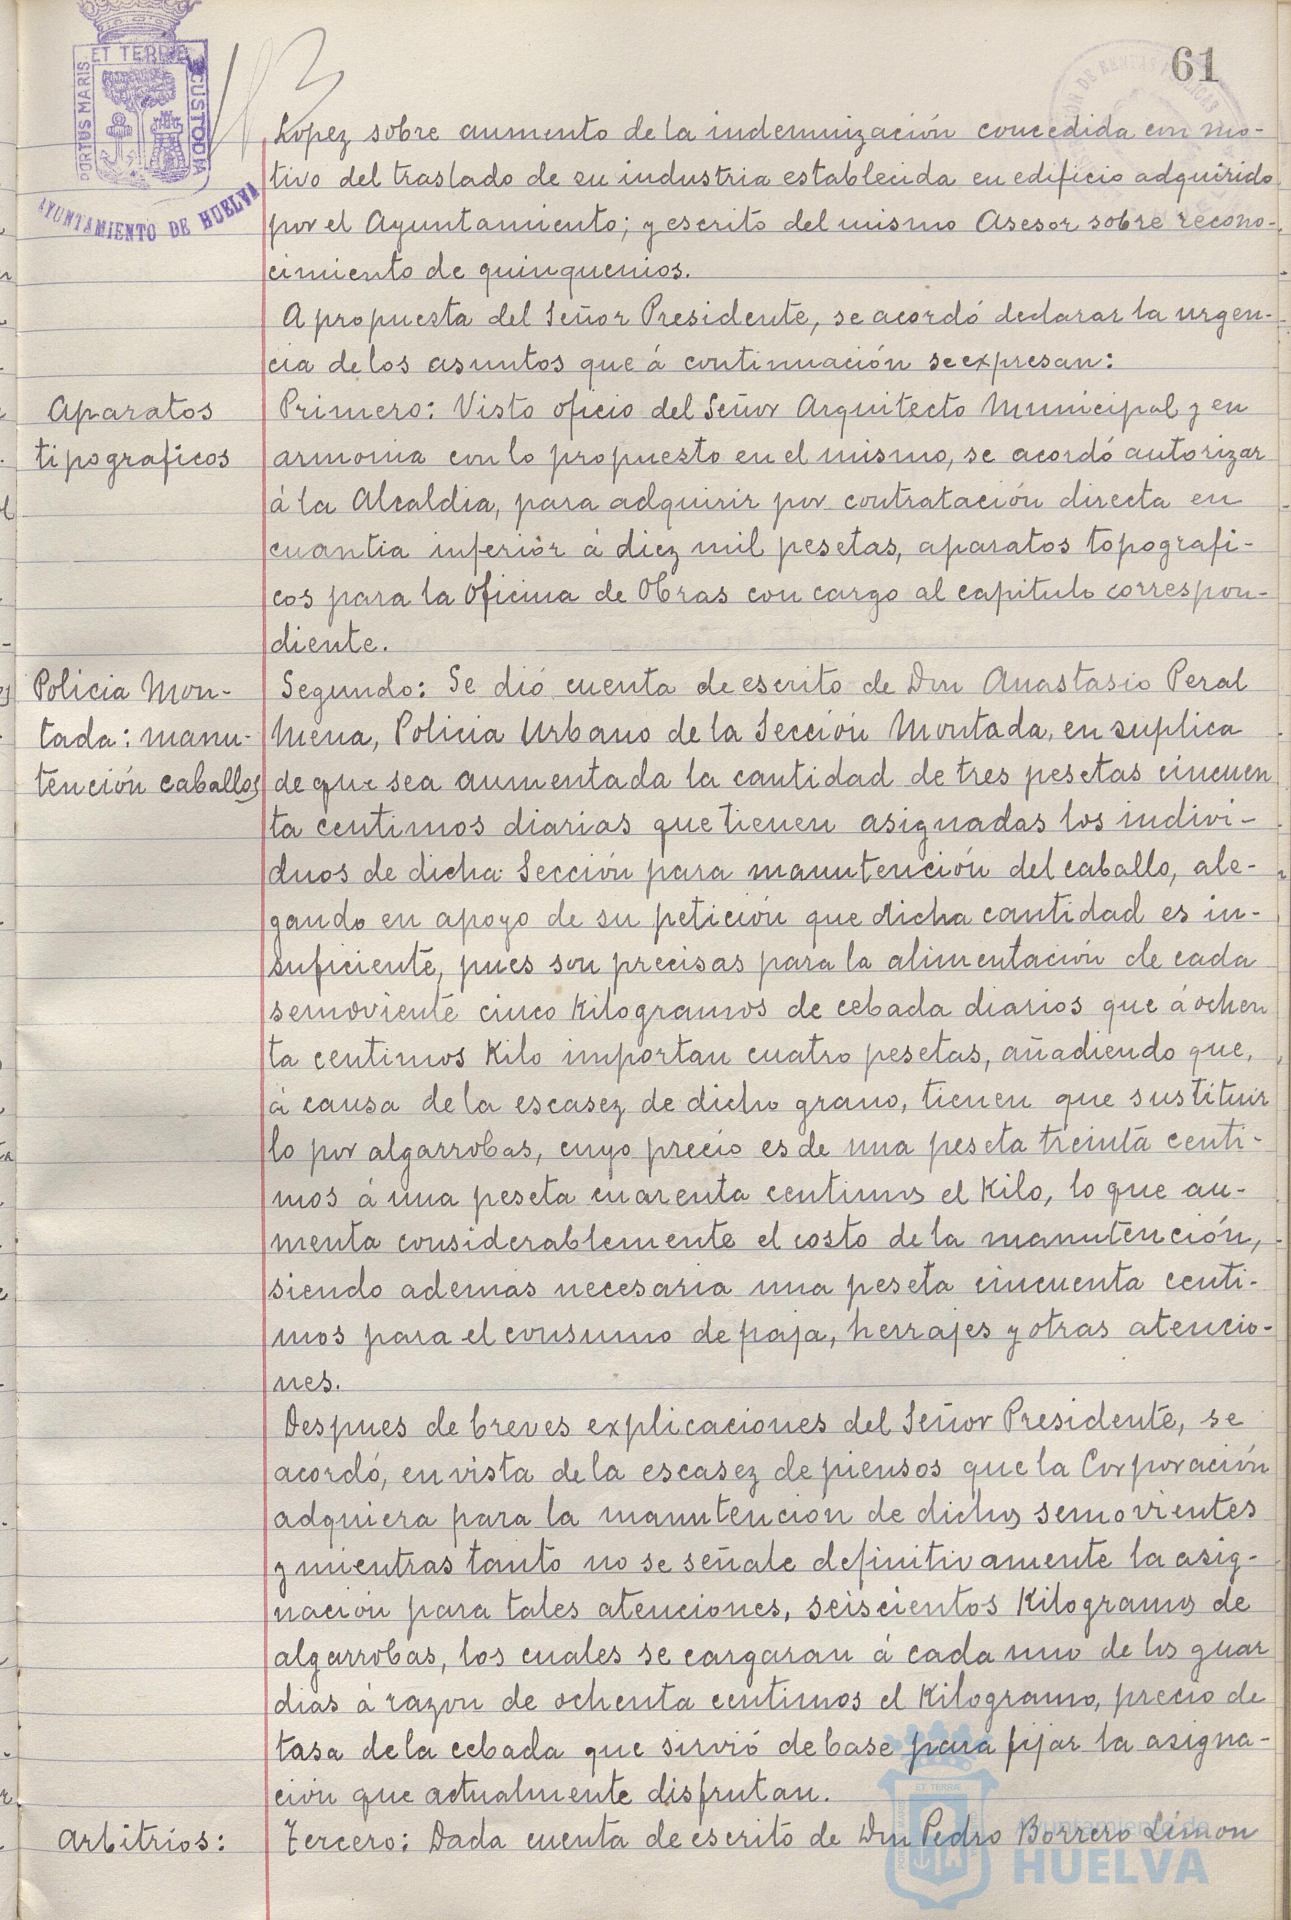 61
PORTUS MARIS ET TERRÆ CUSTODIA
AYUNTAMIENTO DE HUELVA
Lopez sobre aumento de la indemnización concedida con mo-
tivo del traslado de su industria establecida en edificio adquirido
por el Ayuntamiento; y escrito del mismo Asesor sobre recono-
cimiento de quinquenios.
A propuesta del Señor Presidente, se acordó declarar la urgen-
cia de los asuntos que á continuación se expresan:
Aparatos
tipograficos
Primero: Visto oficio del Señor Arquitecto Municipal y en
armonia con lo propuesto en el mismo, se acordó autorizar
á la Alcaldia, para adquirir por contratación directa en
cuantia inferior á diez mil pesetas, aparatos topografi-
cos para la Oficina de Obras con cargo al capitulo correspon-
diente.
Policia Mon-
tada: manu-
tención caballos
Segundo: Se dió cuenta de escrito de Don Anastasio Peral
Mena, Policia Urbano de la Sección Montada, en suplica
de que sea aumentada la cantidad de tres pesetas cincuen
ta centimos diarias que tienen asignadas los indivi-
duos de dicha Sección para manutención del caballo, ale-
gando en apoyo de su petición que dicha cantidad es in-
suficiente, pues son precisas para la alimentación de cada
semoviente cinco Kilogramos de cebada diarios que á ochen
ta centimos Kilo importan cuatro pesetas, añadiendo que,
á causa de la escasez de dicho grano, tienen que sustituir
lo por algarrobas, cuyo precio es de una peseta treinta centi-
mos á una peseta cuarenta centimos el Kilo, lo que au-
menta considerablemente el costo de la manutención,
siendo ademas necesaria una peseta cincuenta centi-
mos para el consumo de paja, herrajes y otras atencio-
nes.
Despues de breves explicaciones del Señor Presidente, se
acordó, en vista de la escasez de piensos que la Corporación
adquiera para la manutencion de dichos semovientes
y mientras tanto no se señale definitivamente la asig-
nación para tales atenciones, seiscientos Kilogramos de
algarrobas, los cuales se cargaran á cada uno de los guar
dias á razon de ochenta centimos el Kilogramo, precio de
tasa de la cebada que sirvió de base para fijar la asigna-
ción que actualmente disfrutan.
Arbitrios:
Tercero: Dada cuenta de escrito de Don Pedro Borrero Limon
Ayuntamiento de
HUELVA